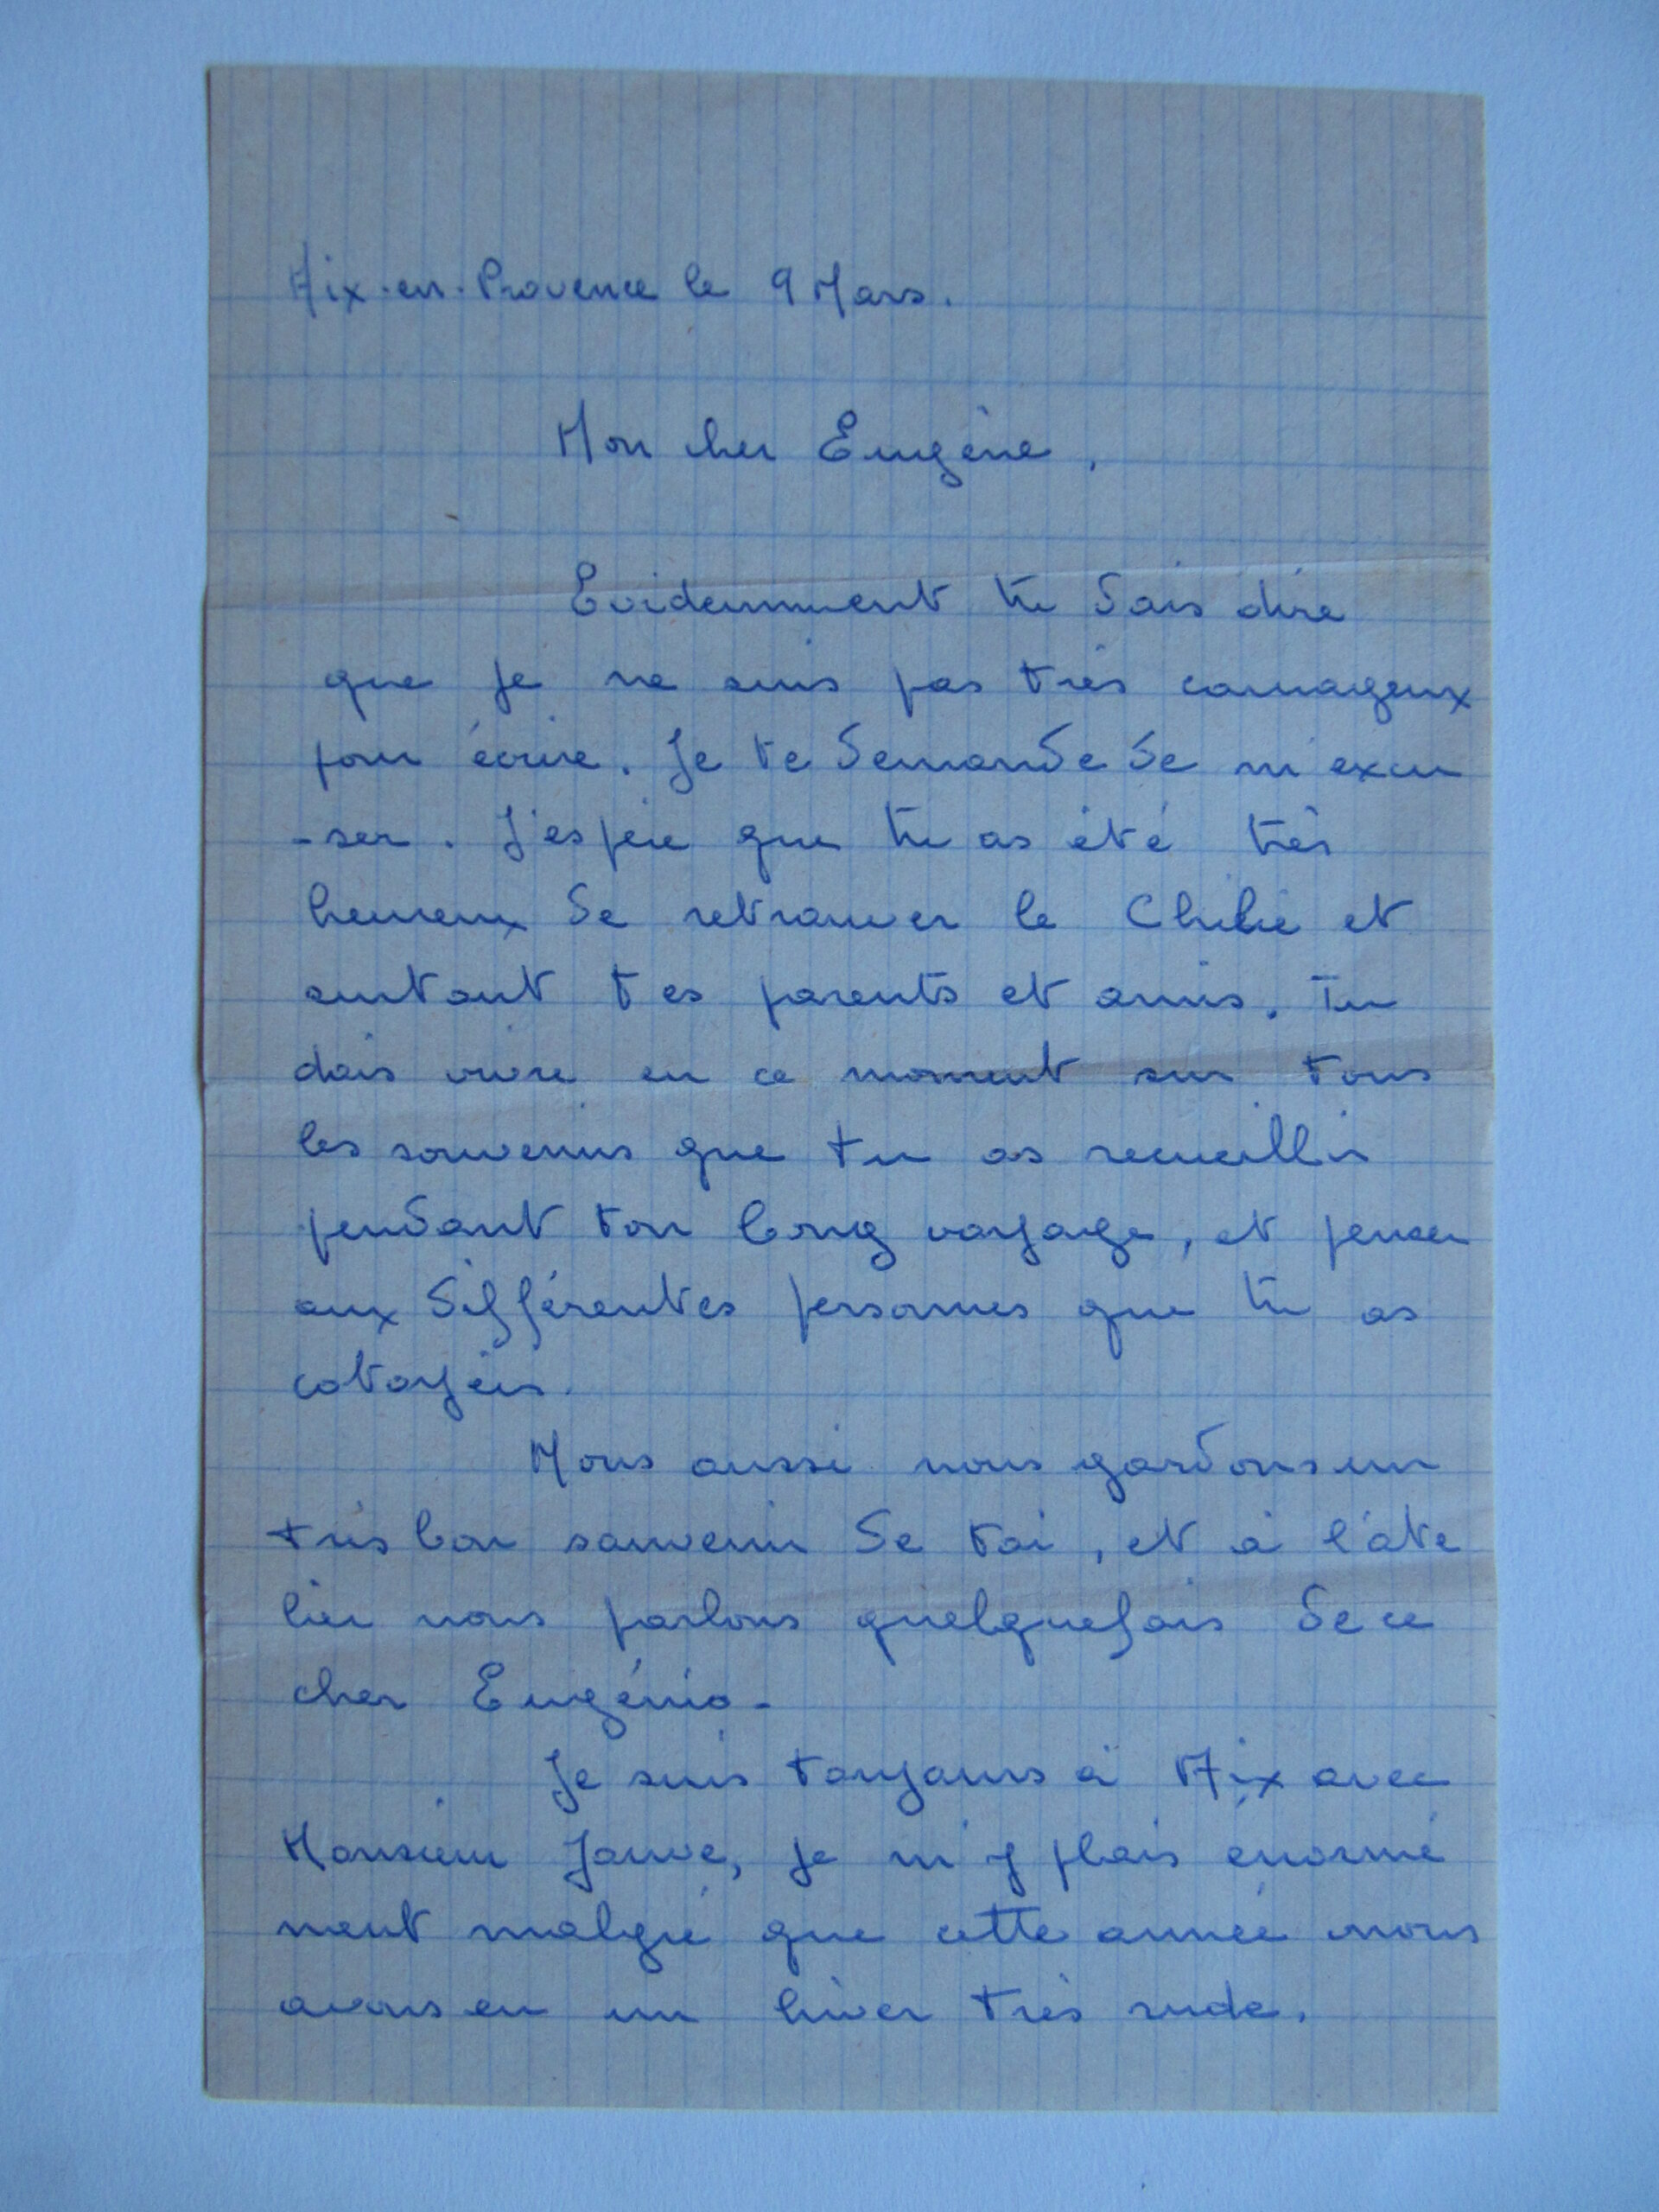 Aix-en-Provence le 9 Mars.
Mon cher Eugène,
Evidemment tu dois dire
que je ne suis pas très courageux
pour écrire. Je te demande de m'excu
-ser. J'espère que tu as été très
heureux de retrouver le Chilie et
surtout tes parents et amis. Tu
dois vivre en ce moment sur tous
les souvenirs que tu as recueillis
pendant ton long voyage, et penser
aux différentes personnes que tu as
cotoyées.
Nous aussi nous gardons un
très bon souvenir de toi, et à l'ate
lier nous parlons quelquefois de ce
cher Eugénio.
Je suis toujours à Aix avec
Monsieur Jouve, je m'y plais énormé
ment malgré que cette année nous
avons eu un hiver très rude.